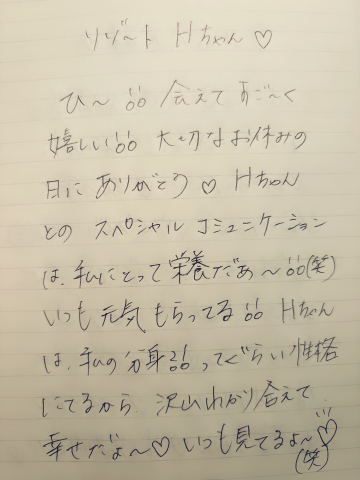 リゾート Hちゃん♡
ひ〜!! 会えて すご〜く
嬉しい!! 大切なお休みの
日に ありがとう♡ Hちゃん
との スペシャル コミュニケーション
は、私にとって栄養だぁ〜!!(笑)
いつも 元気 もらってる!! Hちゃん
は、私の分身!? ってぐらい性格
にてるから 沢山わかり合えて
幸せだょ〜♡ いつも見てるょ〜♡
(笑)